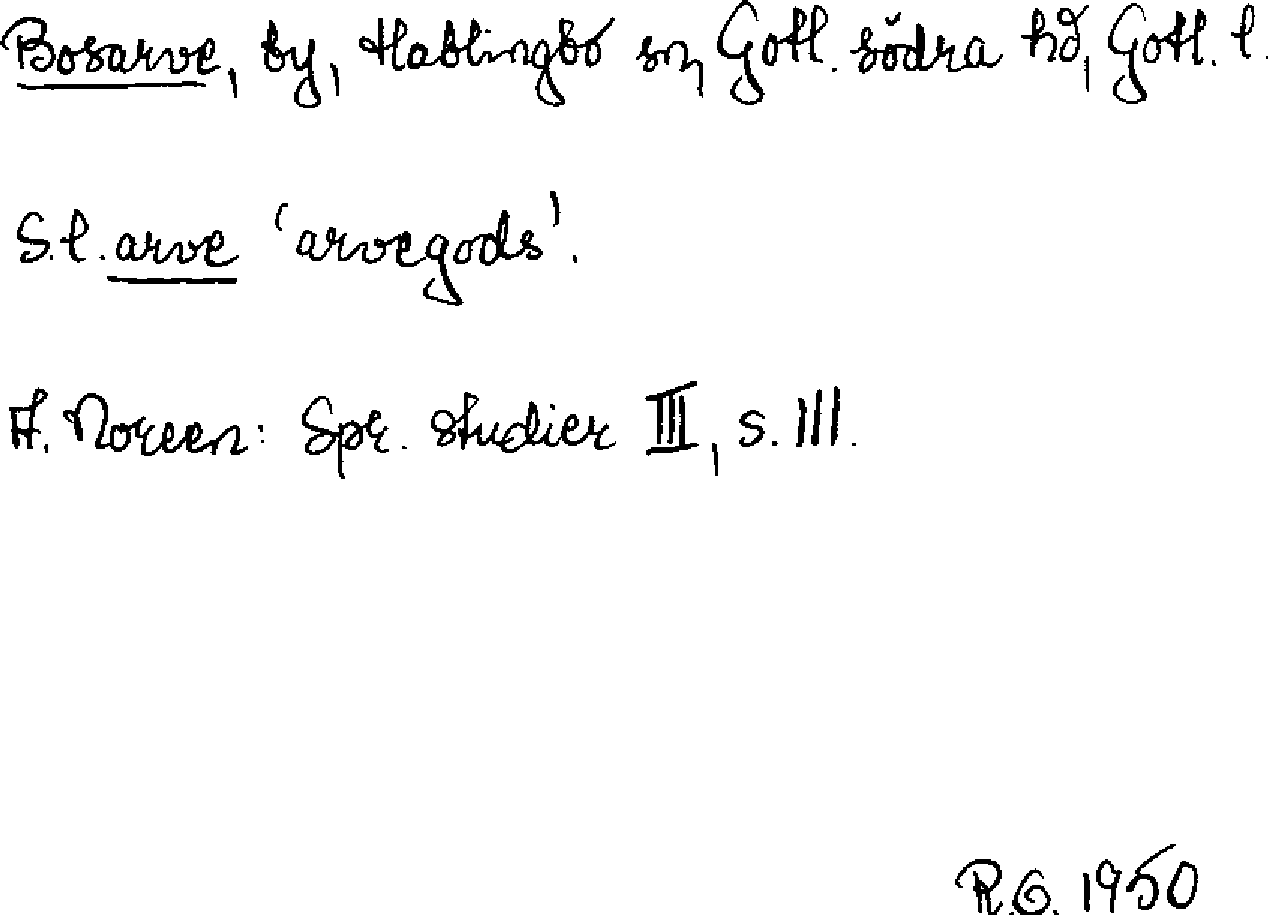 Bosarve, by, Hablingbo sn, Gotl. södra hd, Gotl. l.
S.l. arve 'arvegods'.
A. Noreen: Spr. studier III, s. 111.
R.G. 1950